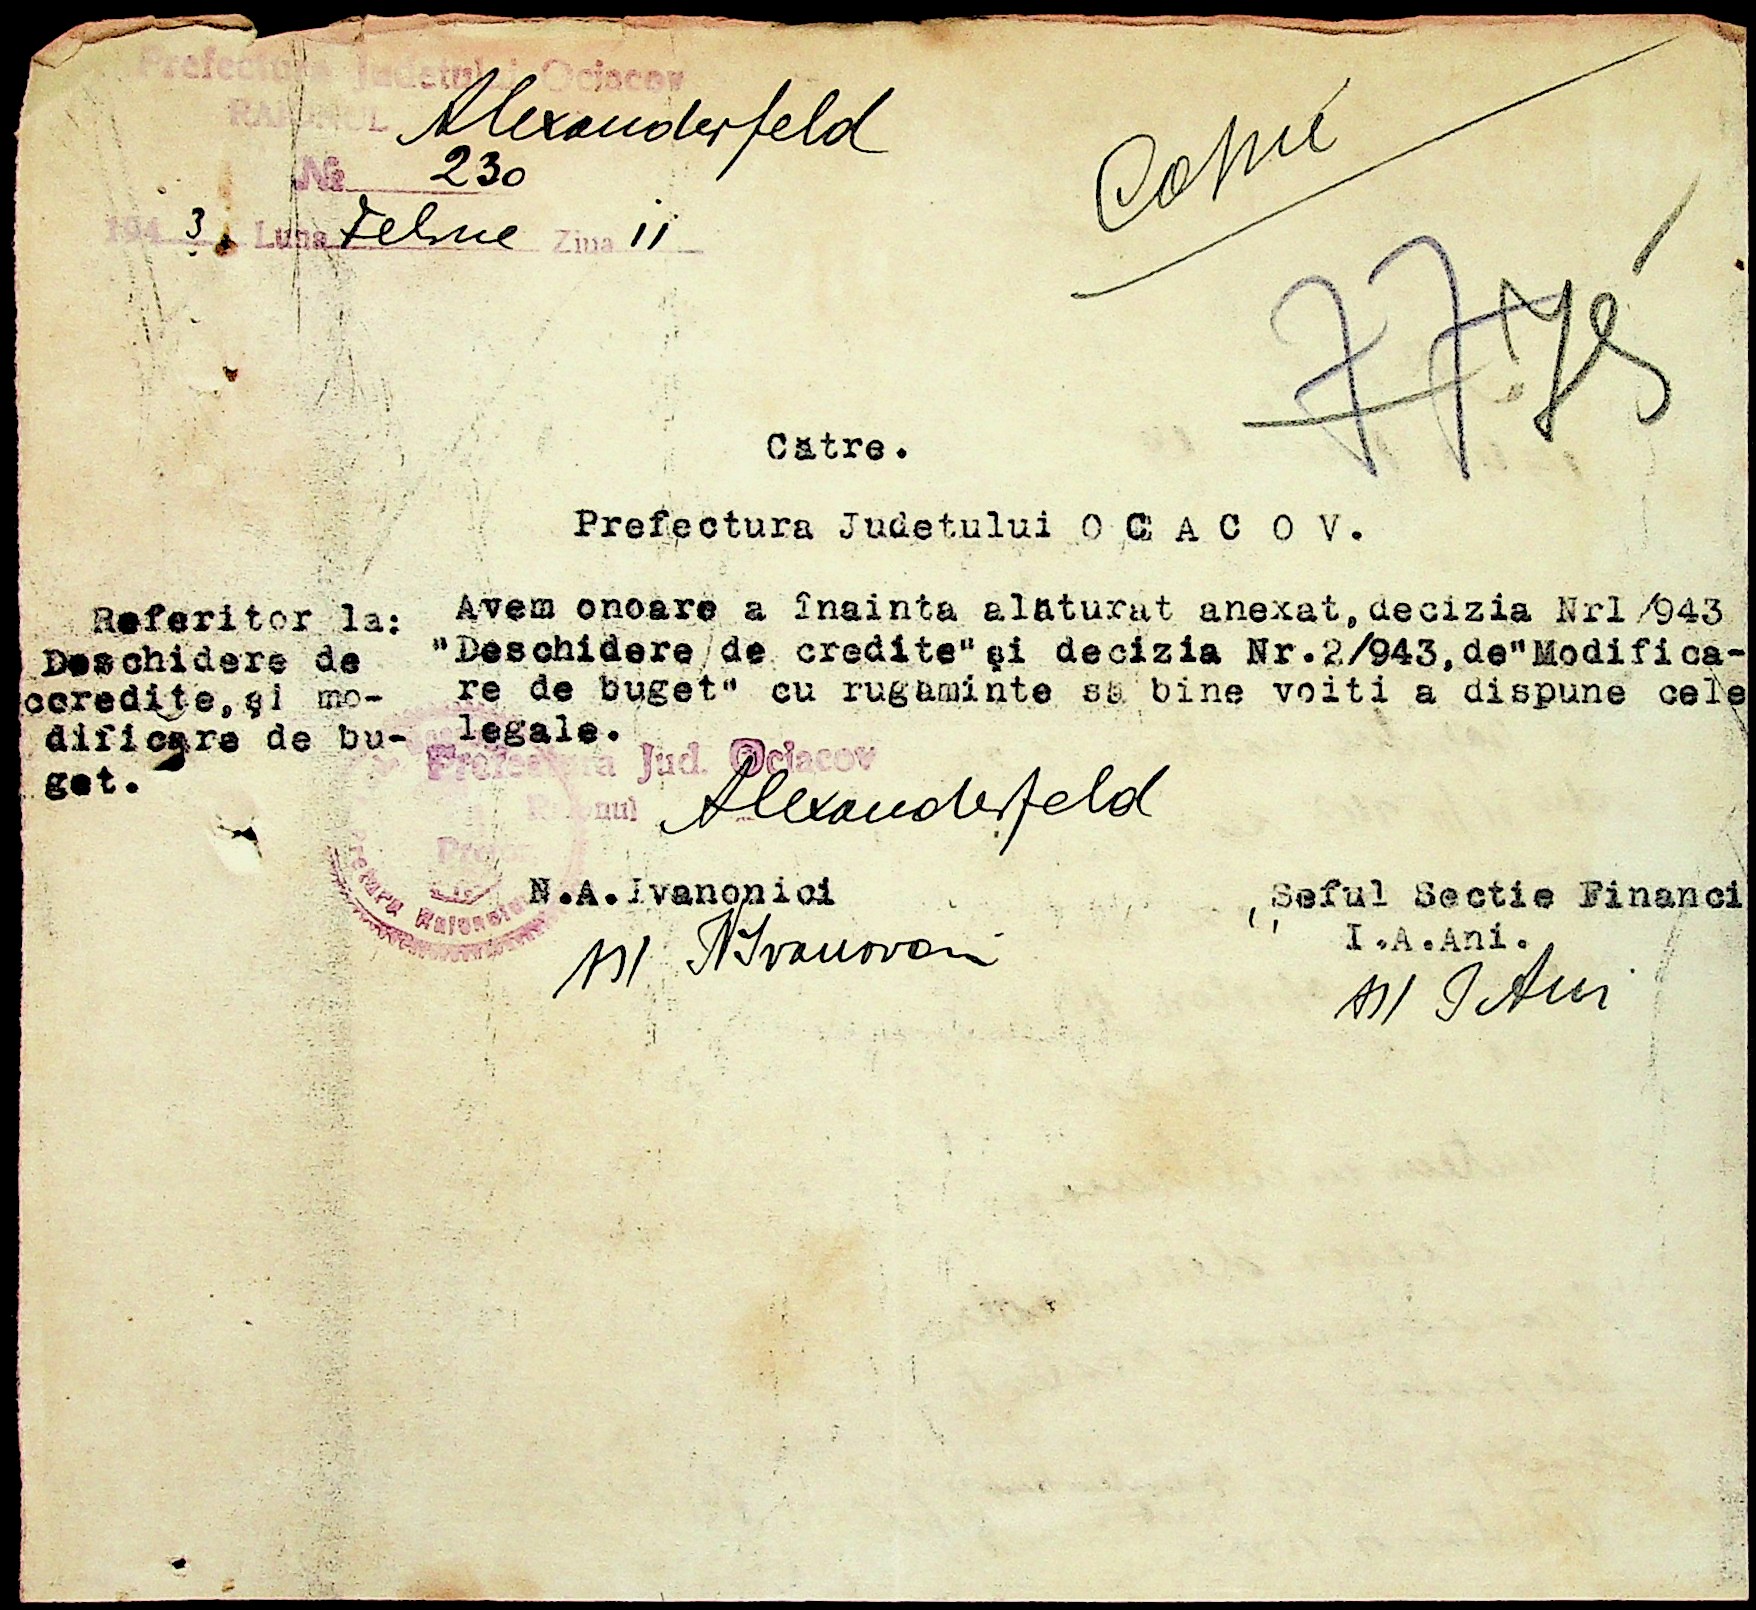 Prefectura Judetului Ociacov
RAIONUL Alexanderfeld
№ 230
1943 Luna Febrrue Ziua 11
Copie
Către.
Prefectura Judetului O C A C O V.
Referitor la:
Deschidere de
ccredite, și mo-
dificare de bu-
get.
Avem onoare a înainta alăturat anexat, decizia Nr1/943
"Deschidere de credite" și decizia Nr.2/943, de "Modifica-
re de buget" cu rugăminte să bine voiti a dispune cele
legale.
Prefectura Jud. Ociacov
Raionul Alexanderfeld
Pretor
N.A.Ivanonici
Seful Sectie Financi
I.A.Ani.
ss/ NIvanovici
ss/ I Ani